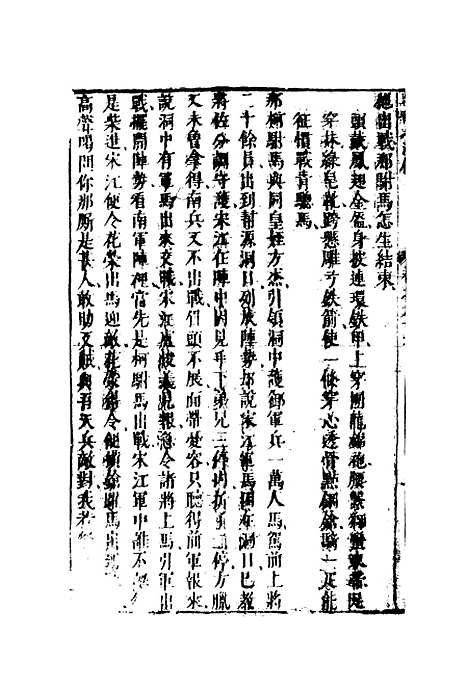 總出戰那駙馬怎生結束
頭戴鳳翅金盔身披連環鐵甲上穿團龍錦袍腰繫獅蠻束帶足
穿抹綠皂靴跨懸雕弓鐵箭使一條穿心透骨點鋼鎗騎一疋能
征慣戰青驄馬
那柯駙馬與同皇姪方杰引領洞中護御軍兵一萬人馬駕前上將
二十餘員出到幫源洞口列成陣勢却說宋江軍馬困住洞口已教
將佐分調守護宋江在陣中因見手下弟兄三停內折了二停方臘
又未曾拿得南兵又不出戰眉頭不展面帶憂容只聽得前軍報來
說洞中有軍馬出來交戰宋江盧俊義見報急令諸將上馬引軍出
戰擺開陣勢看南軍陣裡當先是柯駙馬出戰宋江軍中誰不
是柴進宋江便令花榮出馬迎敵花榮得令便橫鎗躍馬出到
高聲喝問你那廝是甚人敢助反賊與吾天兵敵對我若